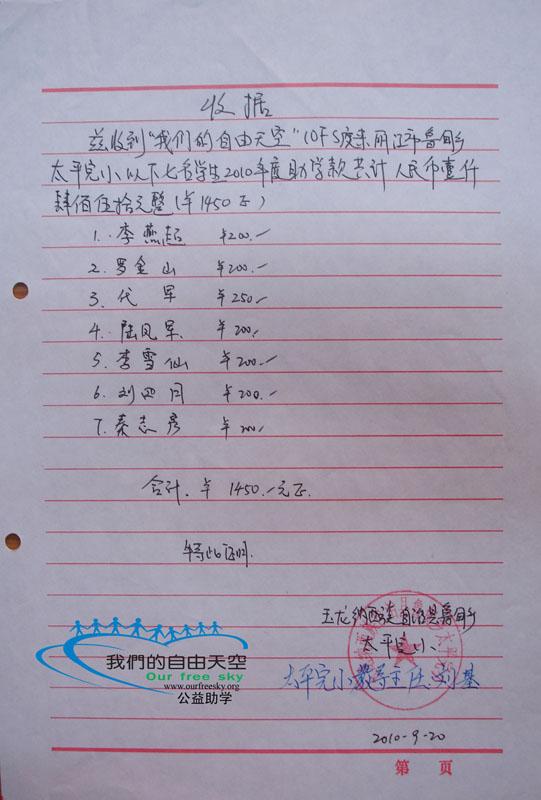 收据
兹收到“我们的自由天空”(OFS)发来丽江市鲁甸乡
太平完小以下七名学生2010年度助学款共计人民币壹仟
肆佰伍拾元整(￥1450正)
1. 李燕超 ￥200.-
2. 罗金山 ￥200.-
3. 代军 ￥250.-
4. 陆凤军 ￥200.
5. 李雪仙 ￥200.-
6. 刘四月 ￥200.-
7. 秦志彦 ￥200.-
合计. ￥ 1450.-元正.
特此证明.
玉龙纳西族自治县鲁甸乡
太平完小
太平完小教导主任
2010-9-20
我們的自由天空
Our free sky
www.ourfreesky.org
公益助学
第 页